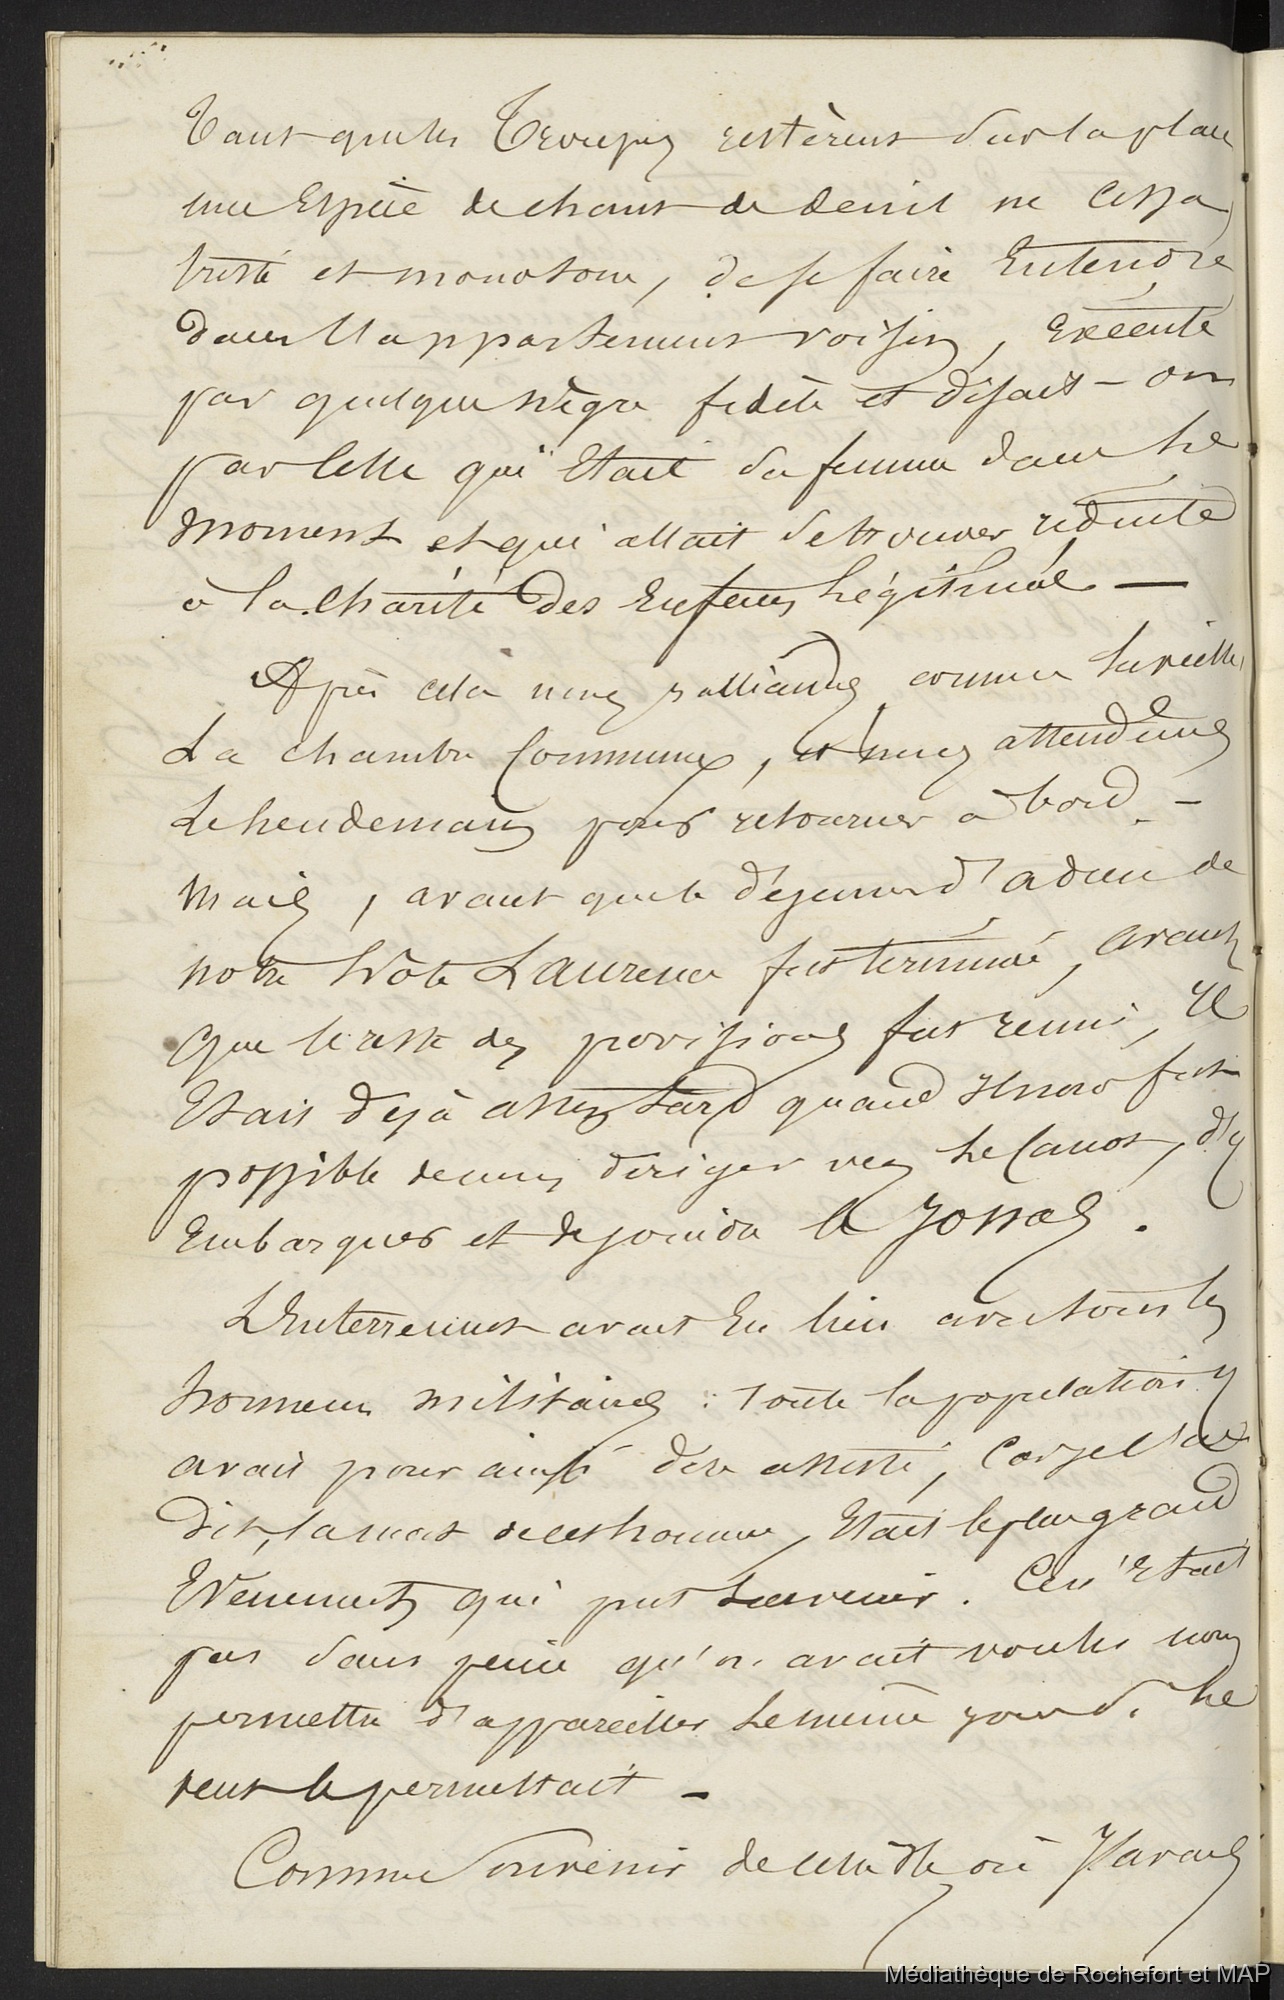 Tant que les Troupes restèrent sur la place
une Espèce de chant de deuil ne Cessa
triste et monotone, de se faire Entendre
dans l'appartement voisin, Exécuté
par quelque nègre fidèle et disait-on
par Celle qui Etait sa femme dans le
moment et qui allait se trouver réduite
à la Charité des Enfans Légitimes —
Après cela nous ralliames comme la veille
La chambre Commune, et nous attendimes
Le lendemain pour retourner à bord. —
Mais, avant que le déjeuner d'adieu de
notre hôte Laurence fut terminé, avant
que le reste des provisions fut réuni, Il
Etait déjà assez tard quand Il nous fut
possible de nous diriger vers Le Canot, d'y
Embarquer et de joindre le
L'Enterrement avait Eu lieu avec tous les
honneurs militaires : toute la population y
avait pour ainsi dire assisté, Car je l'ai
dit, la mort de cet homme, Etait le plus grand
Evènement qui put survenir. Ce n'Etait
pas sans peine qu'on avait voulu nous
permettre d'appareiller Le même jour si Le
vent le permettait —
Comme Souvenir de cette île où J'avais
Médiathèque de Rochefort et MAP